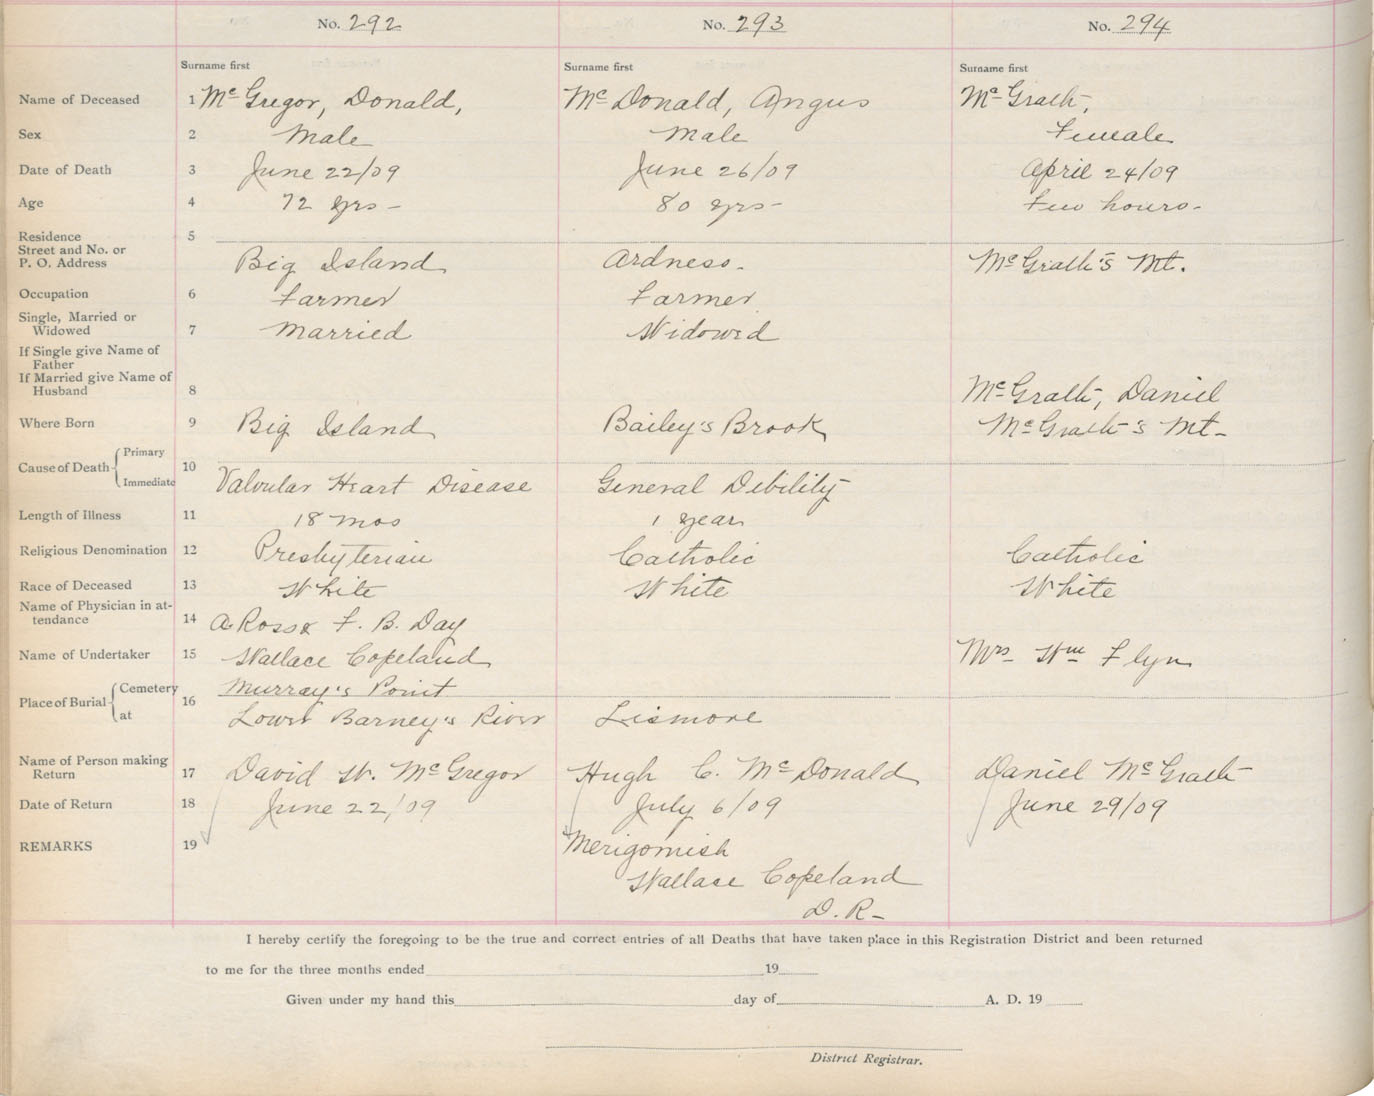 No. 292 No. 293 No. 294
Surname first Surname first Surname first
Name of Deceased 1 McGregor, Donald, McDonald, Angus McGrath,
Sex 2 Male Male Female
Date of Death 3 June 22/09 June 26/09 April 24/09
Age 4 72 yrs - 80 yrs - Few hours -
Residence 5
Street and No. or
P. O. Address Big Island Ardness. McGrath's Mt.
Occupation 6 Farmer Farmer
Single, Married or
Widowed 7 Married Widowed
If Single give Name of
Father
If Married give Name of
Husband 8 McGrath, Daniel
Where Born 9 Big Island Bailey's Brook McGrath's Mt -
Cause of Death Primary
10
Immediate Valvular Heart Disease General Debility
Length of Illness 11 18 mos 1 year
Religious Denomination 12 Presbyterian Catholic Catholic
Race of Deceased 13 White White White
Name of Physician in at-
tendance 14 A. Ross & F. B. Day
Name of Undertaker 15 Wallace Copeland Mrs Wm Flyn
Place of Burial Cemetery 16 Murray's Point
at Lower Barney's River Lismore
Name of Person making
Return 17 David W. McGregor Hugh C. McDonald Daniel McGrath
Date of Return 18 June 22/09 July 6/09 June 29/09
REMARKS 19 Merigomish
Wallace Copeland
D. R -
I hereby certify the foregoing to be the true and correct entries of all Deaths that have taken place in this Registration District and been returned
to me for the three months ended 19
Given under my hand this day of A. D. 19
District Registrar.